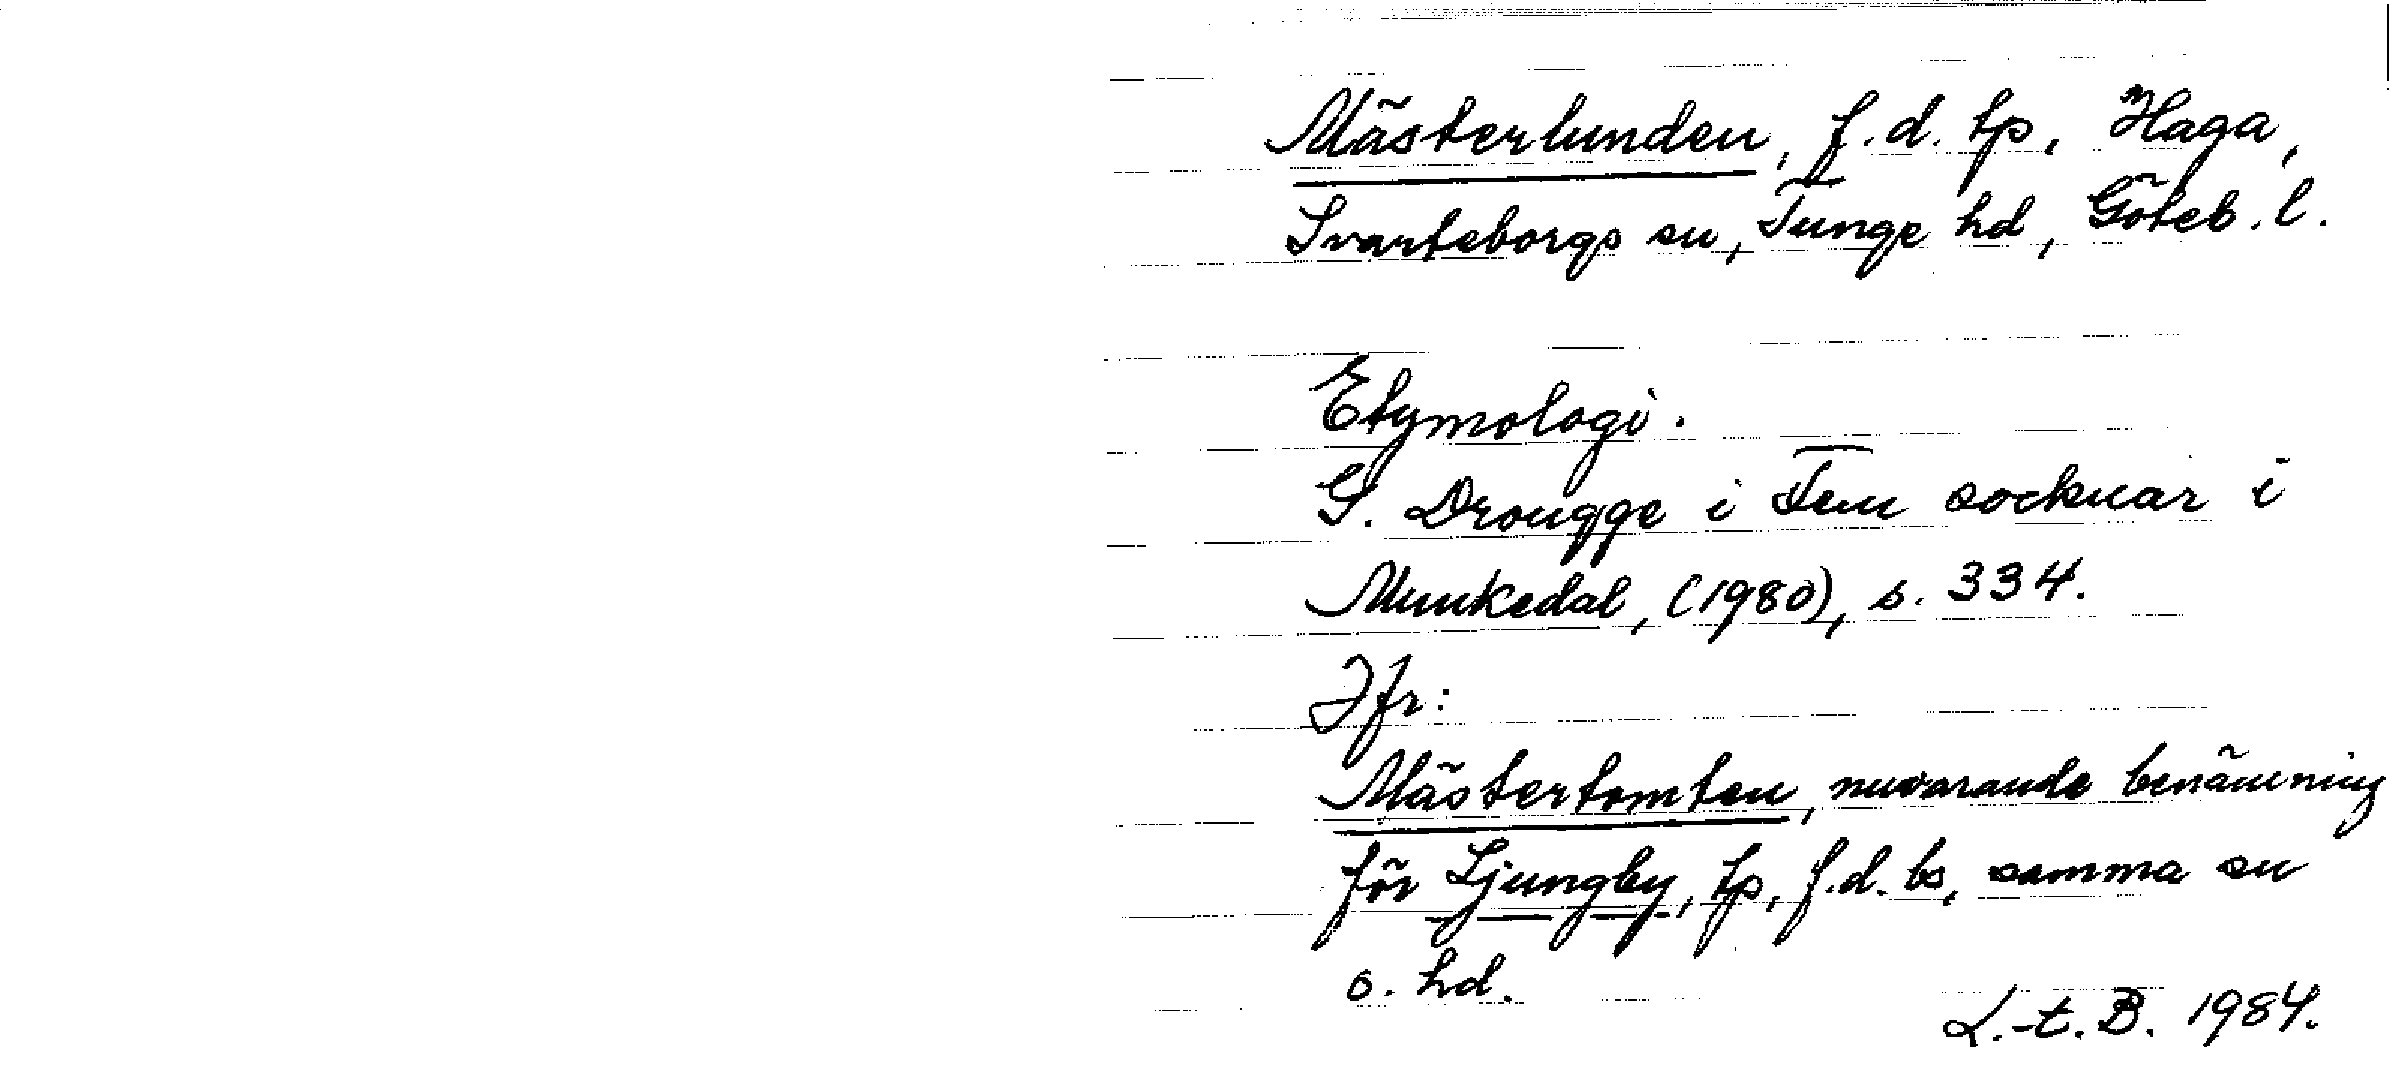 Mästerlunden, f.d. tp, Haga,
Svarteborgs sn, Tunge hd, Göteb. l.
Etymologi.
G. Drougge i Fem socknar i
Munkedal, (1980), s. 334.
Jfr:
Mästertomten, nuvarande benämning
för Ljungby, tp, f.d. bs, samma sn
o. hd.
L.-t. B. 1984.